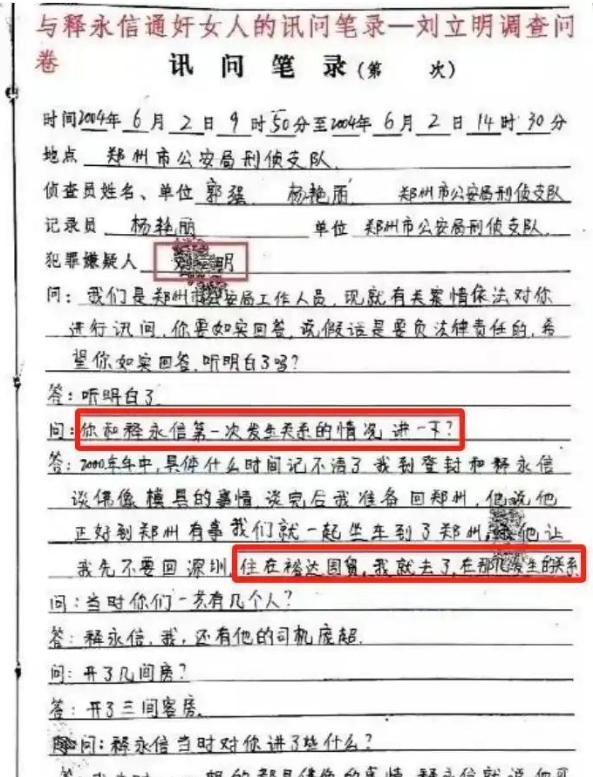 与释永信通奸女人的讯问笔录—刘立明调查问
卷
讯问笔录(第 次)
时间2004年6月2日9时50分至2004年6月2日14时30分
地点 郑州市公安局刑侦支队.
侦查员姓名、单位 郭强 杨艳丽 郑州市公安局刑侦支队
记录员 杨艳丽 单位 郑州市公安局刑侦支队.
犯罪嫌疑人 明
问: 我们是郑州市公安局工作人员,现就有关案情依法对你
进行讯问,你要如实回答,说假话是要负法律责任的,希
望你如实回答,听明白了吗?
答: 听明白了.
问: 你和释永信第一次发生关系的情况讲一下?
答: 2000年年中,具体什么时间记不清了我到登封和释永信
谈佛像模具的事情,谈完后我准备回郑州,他说他
正好到郑州有事我们就一起坐车到了郑州, 他让
我先不要回深圳,住在裕达国贸,我就去了,在那 发生的关系
问: 当时你们一共有几个人?
答: 释永信,我,还有他的司机庞超.
问: 开了几间房?
答: 开了三间客房.
问: 释永信当时对你讲了些什么?